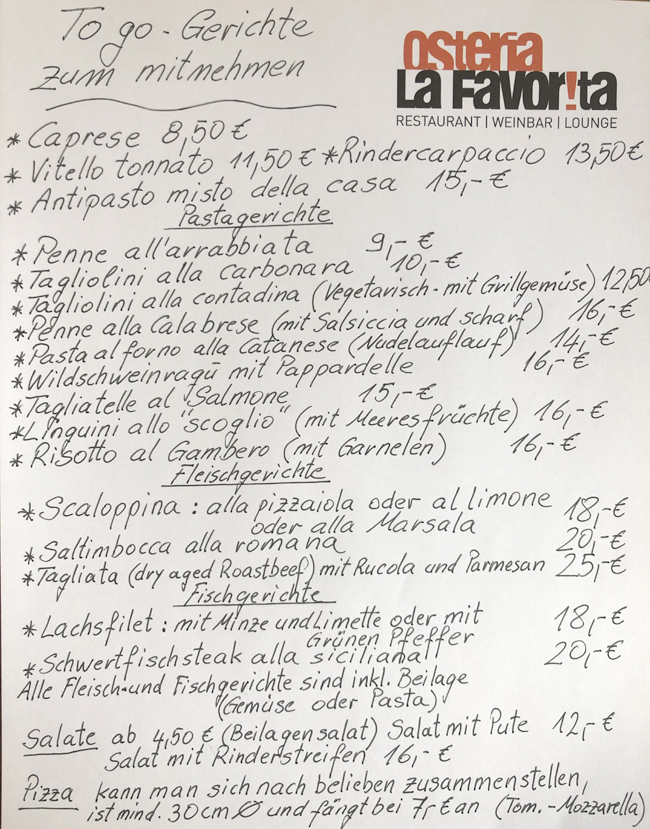 To go - Gerichte
zum mitnehmen
osteria
La Favor!ta
RESTAURANT | WEINBAR | LOUNGE
* Caprese 8,50 €
* Vitello tonnato 11,50 € * Rindercarpaccio 13,50 €
* Antipasto misto della casa 15,- €
Pastagerichte
* Penne all'arrabbiata 9,- €
* Tagliolini alla carbonara 10,- €
* Tagliolini alla contadina (Vegetarisch - mit Grillgemüse) 12,50
* Penne alla Calabrese (mit Salsiccia und scharf) 16,- €
* Pasta al forno alla Catanese (Nudelauflauf) 14,- €
* Wildschweinragù mit Pappardelle 16,- €
* Tagliatelle al Salmone 15,- €
* Linguini allo "scoglio" (mit Meeresfrüchte) 16,- €
* Risotto al Gambero (mit Garnelen) 16,- €
Fleischgerichte
* Scaloppina : alla pizzaiola oder al limone 18,- €
oder alla Marsala
* Saltimbocca alla romana 20,- €
* Tagliata (dry aged Roastbeef) mit Rucola und Parmesan 25,- €
Fischgerichte
* Lachsfilet : mit Minze und Limette oder mit 18,- €
Grünen Pfeffer
* Schwertfischsteak alla siciliana 20,- €
Alle Fleisch- und Fischgerichte sind inkl. Beilage
(Gemüse oder Pasta)
Salate ab 4,50 € (Beilagensalat) Salat mit Pute 12,- €
Salat mit Rinderstreifen 16,- €
Pizza kann man sich nach belieben zusammenstellen,
ist mind. 30cm Ø und fängt bei 7,- € an (Tom. - Mozzarella)